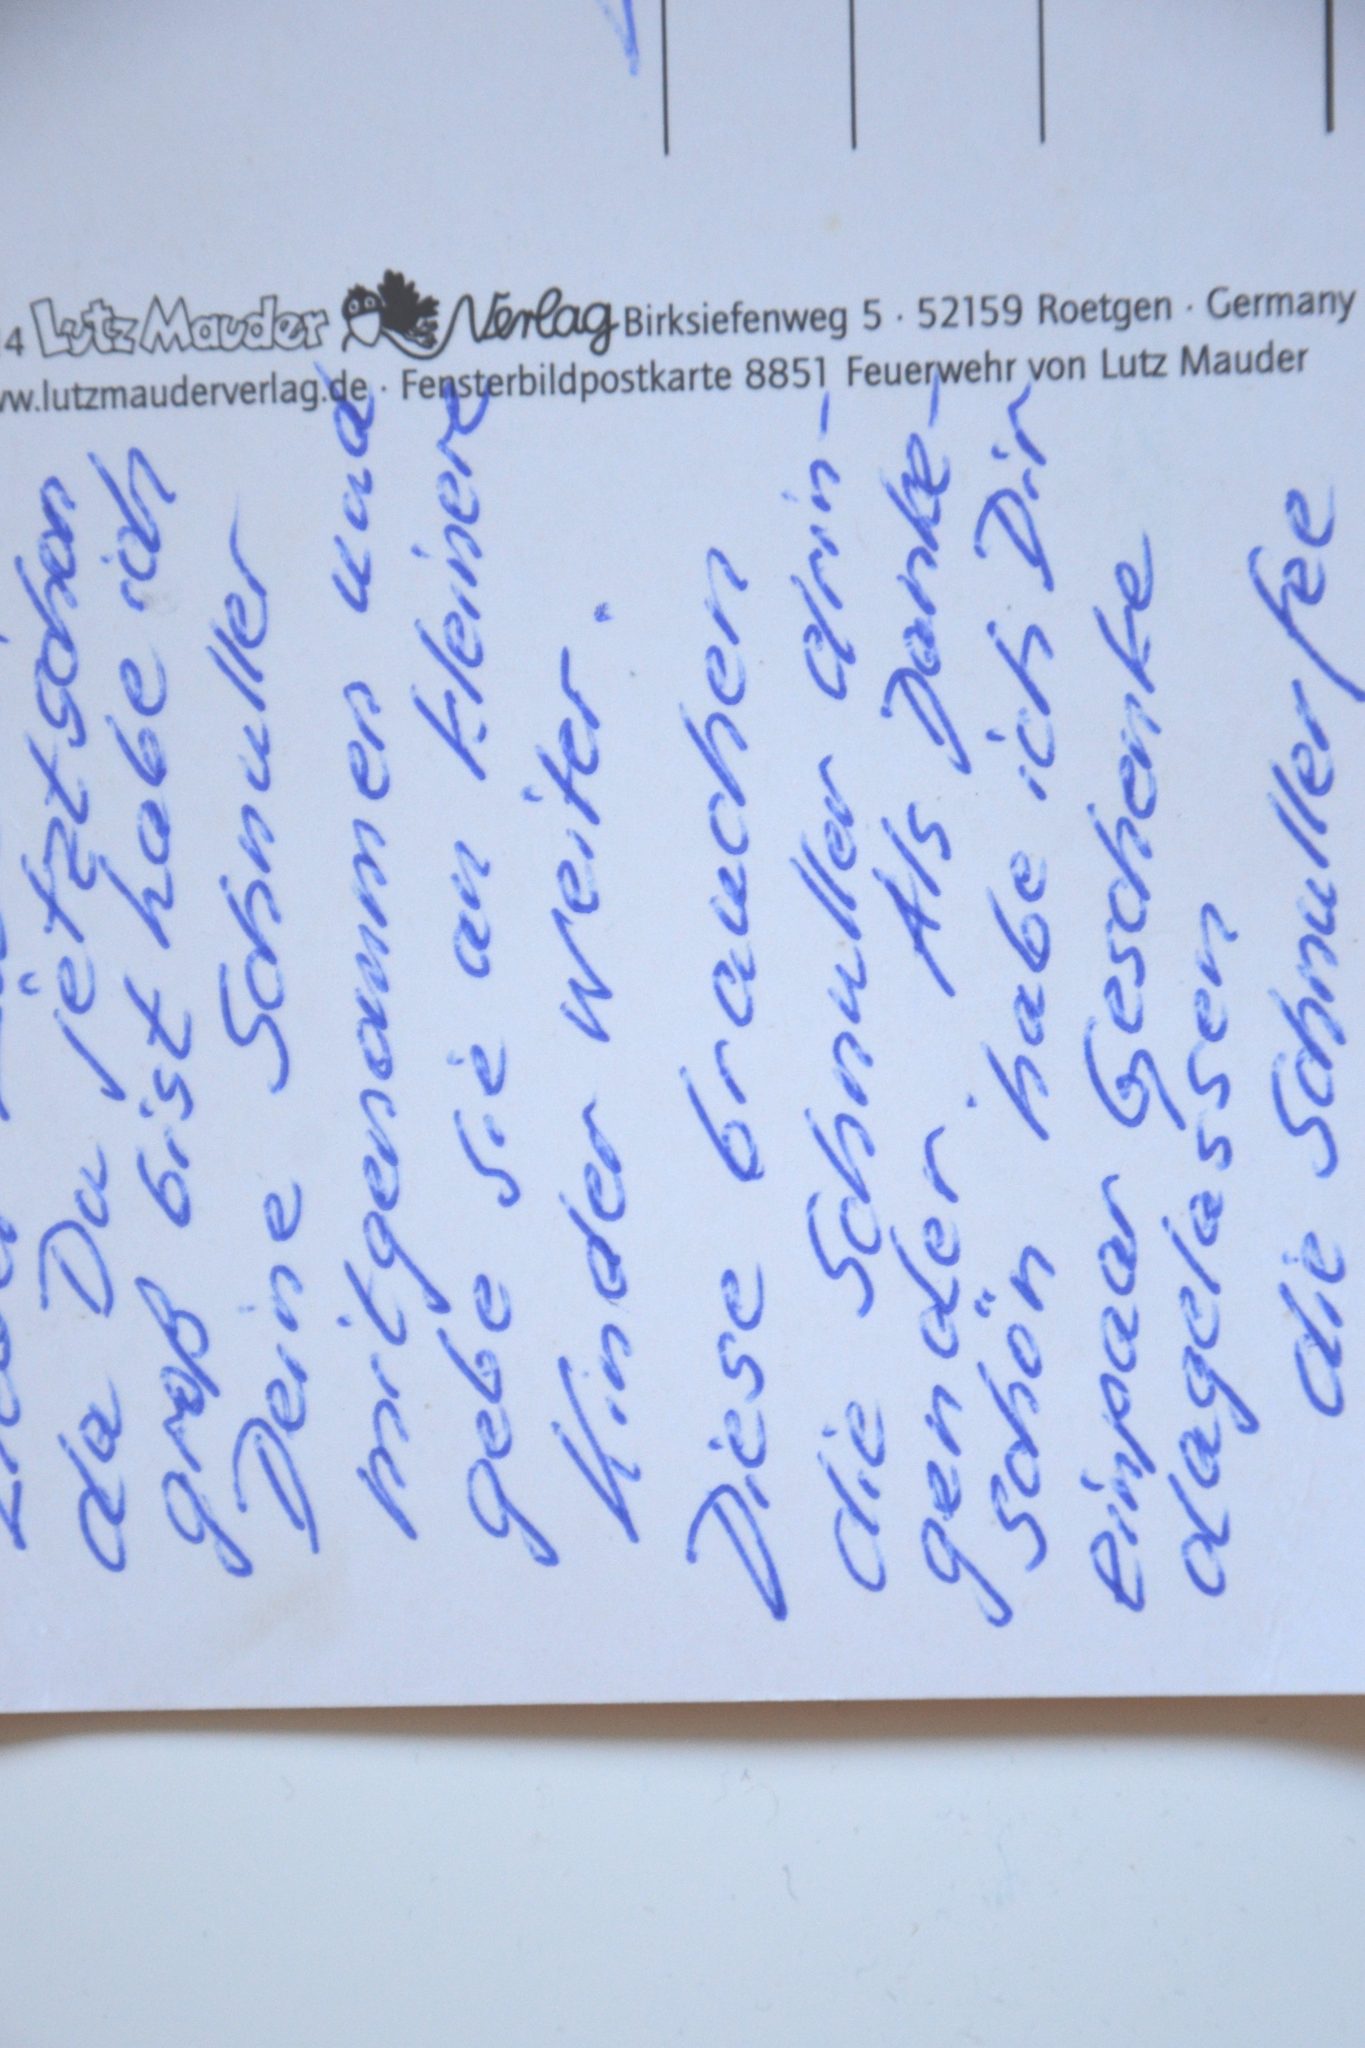 da Du jetzt schon
groß bist habe ich
Deine Schnuller
mitgenommen und
gebe sie an kleinere
Kinder weiter.
Diese brauchen
die Schnuller drin-
gender. Als Danke-
schön habe ich Dir
einpaar Geschenke
dagelassen
die Schnullerfee
14 Lutz Mauder Verlag Birksiefenweg 5 · 52159 Roetgen · Germany
ww.lutzmauderverlag.de · Fensterbildpostkarte 8851 Feuerwehr von Lutz Mauder